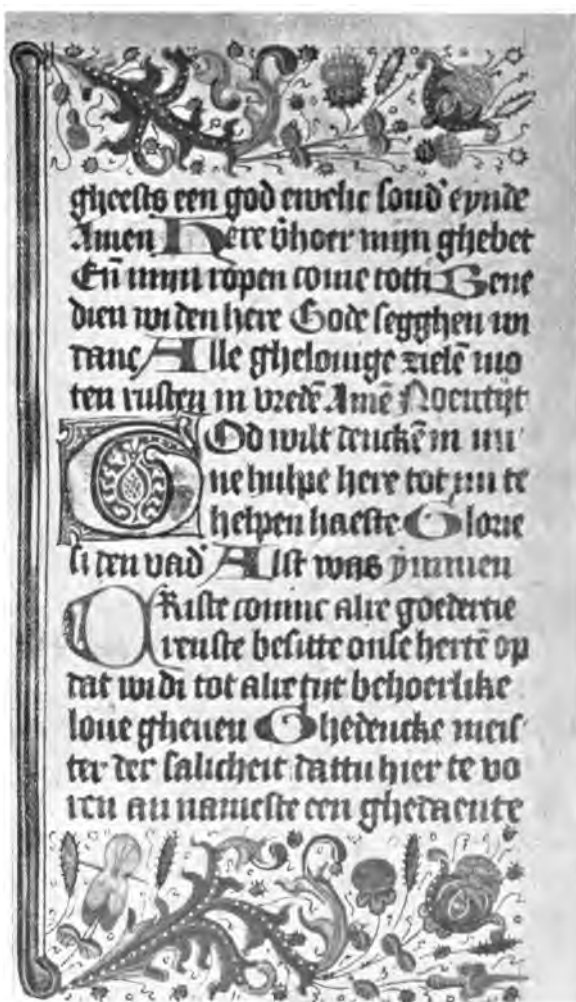 gheests een god ewelic sond' eynde
Amen Here v̄hoer mijn ghebet
Eñ mijn ropen come totti Bene
dien wi den here Gode segghen wi
danc Alle ghelouige zielē mo
ten rusten in vredē Amē Noentijt
God wilt denckē in mi
ne hulpe here tot mi te
helpen haeste Glorie
si den vad' Alst was ymmen
Criste coninc alre goedertie
renste besitte onse hertē op
dat wi di tot alre tijt behoerlike
loue gheuen Ghedencke meis
ter der salicheit dattu hier te vo
ren an nameste een ghedaente